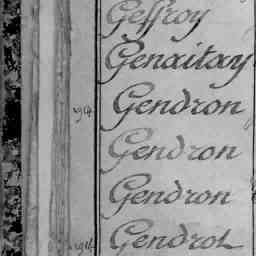 Geffroy
Genaitay
Gendron
Gendron
Gendron
Gendrot